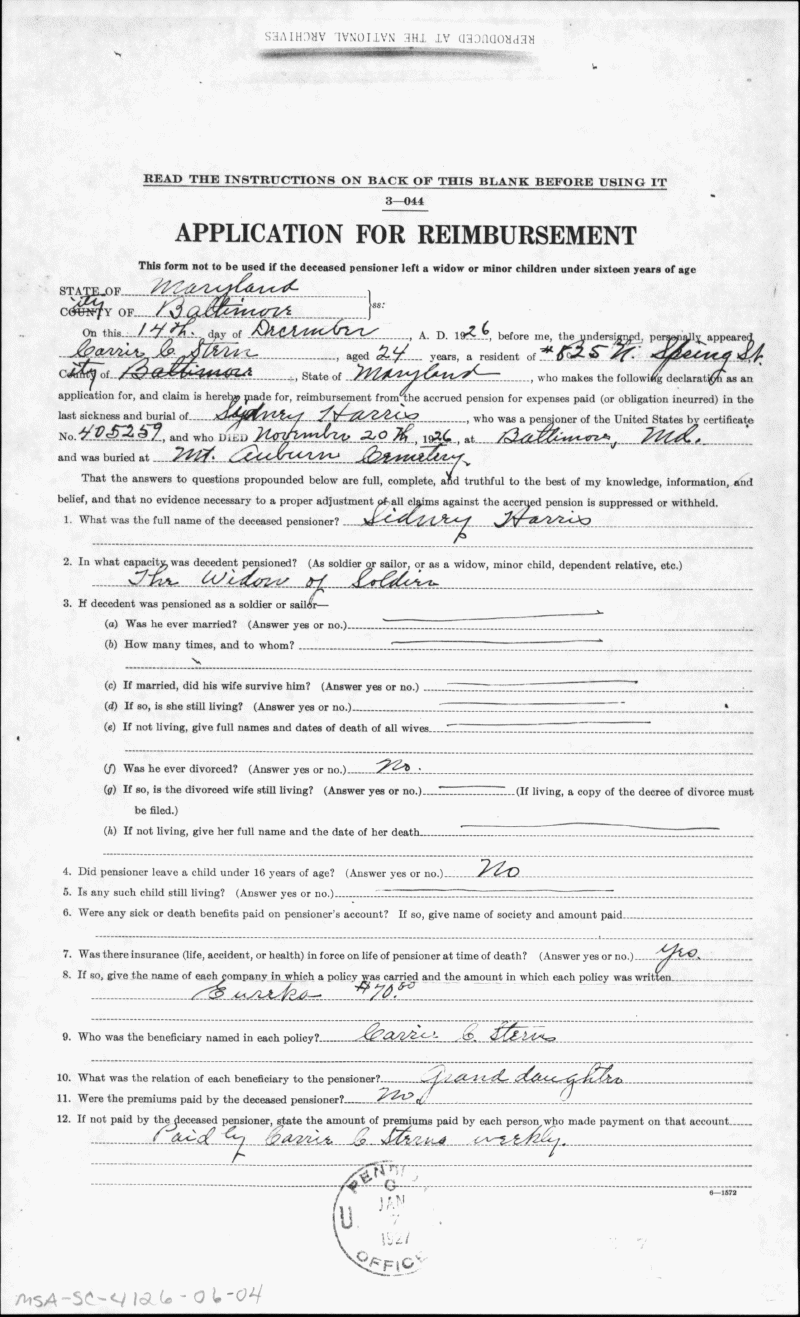 REPRODUCED AT THE NATIONAL ARCHIVES
READ THE INSTRUCTIONS ON BACK OF THIS BLANK BEFORE USING IT
3—044
APPLICATION FOR REIMBURSEMENT
This form not to be used if the deceased pensioner left a widow or minor children under sixteen years of age
STATE OF Maryland
City OF Baltimore ss:
On this 14th. day of December, A. D. 1926, before me, the undersigned, personally appeared
Carrie C. Stern, aged 24 years, a resident of #825 N. Spring St.
City of Baltimore, State of Maryland, who makes the following declaration as an
application for, and claim is hereby made for, reimbursement from the accrued pension for expenses paid (or obligation incurred) in the
last sickness and burial of Sydney Harris, who was a pensioner of the United States by certificate
No. 405259, and who DIED November 20th, 1926, at Baltimore, Md.
and was buried at Mt. Auburn Cemetery.
That the answers to questions propounded below are full, complete, and truthful to the best of my knowledge, information, and
belief, and that no evidence necessary to a proper adjustment of all claims against the accrued pension is suppressed or withheld.
1. What was the full name of the deceased pensioner? Sidney Harris
2. In what capacity was decedent pensioned? (As soldier or sailor, or as a widow, minor child, dependent relative, etc.)
The Widow of Soldier
3. If decedent was pensioned as a soldier or sailor—
(a) Was he ever married? (Answer yes or no.)
(b) How many times, and to whom?
(c) If married, did his wife survive him? (Answer yes or no.)
(d) If so, is she still living? (Answer yes or no.)
(e) If not living, give full names and dates of death of all wives
(f) Was he ever divorced? (Answer yes or no.) No.
(g) If so, is the divorced wife still living? (Answer yes or no.) (If living, a copy of the decree of divorce must
be filed.)
(h) If not living, give her full name and the date of her death
4. Did pensioner leave a child under 16 years of age? (Answer yes or no.) No
5. Is any such child still living? (Answer yes or no.)
6. Were any sick or death benefits paid on pensioner's account? If so, give name of society and amount paid
7. Was there insurance (life, accident, or health) in force on life of pensioner at time of death? (Answer yes or no.) Yes.
8. If so, give the name of each company in which a policy was carried and the amount in which each policy was written
Eureka #70.00
9. Who was the beneficiary named in each policy? Carrie C. Sterns
10. What was the relation of each beneficiary to the pensioner? Grand daughter
11. Were the premiums paid by the deceased pensioner? No.
12. If not paid by the deceased pensioner, state the amount of premiums paid by each person who made payment on that account
Paid by Carrie C. Sterns weekly.
6—1572
U
JAN
7
1927
OFFICE
MSA-SC-4126-06-04